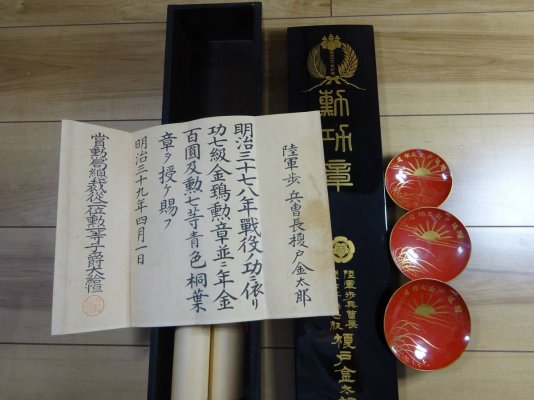 陸軍歩兵曹長榎戸金太郎
明治三十七八年戦役ノ功ニ依リ
功七級金鵄勲章並ニ年金
百圓及勲七等青色桐葉
章ヲ授ケ賜フ
明治三十九年四月一日
賞勲局總裁従二位勲一等子爵大給恒
勲功章
陸軍歩兵曹長
榎戸金太